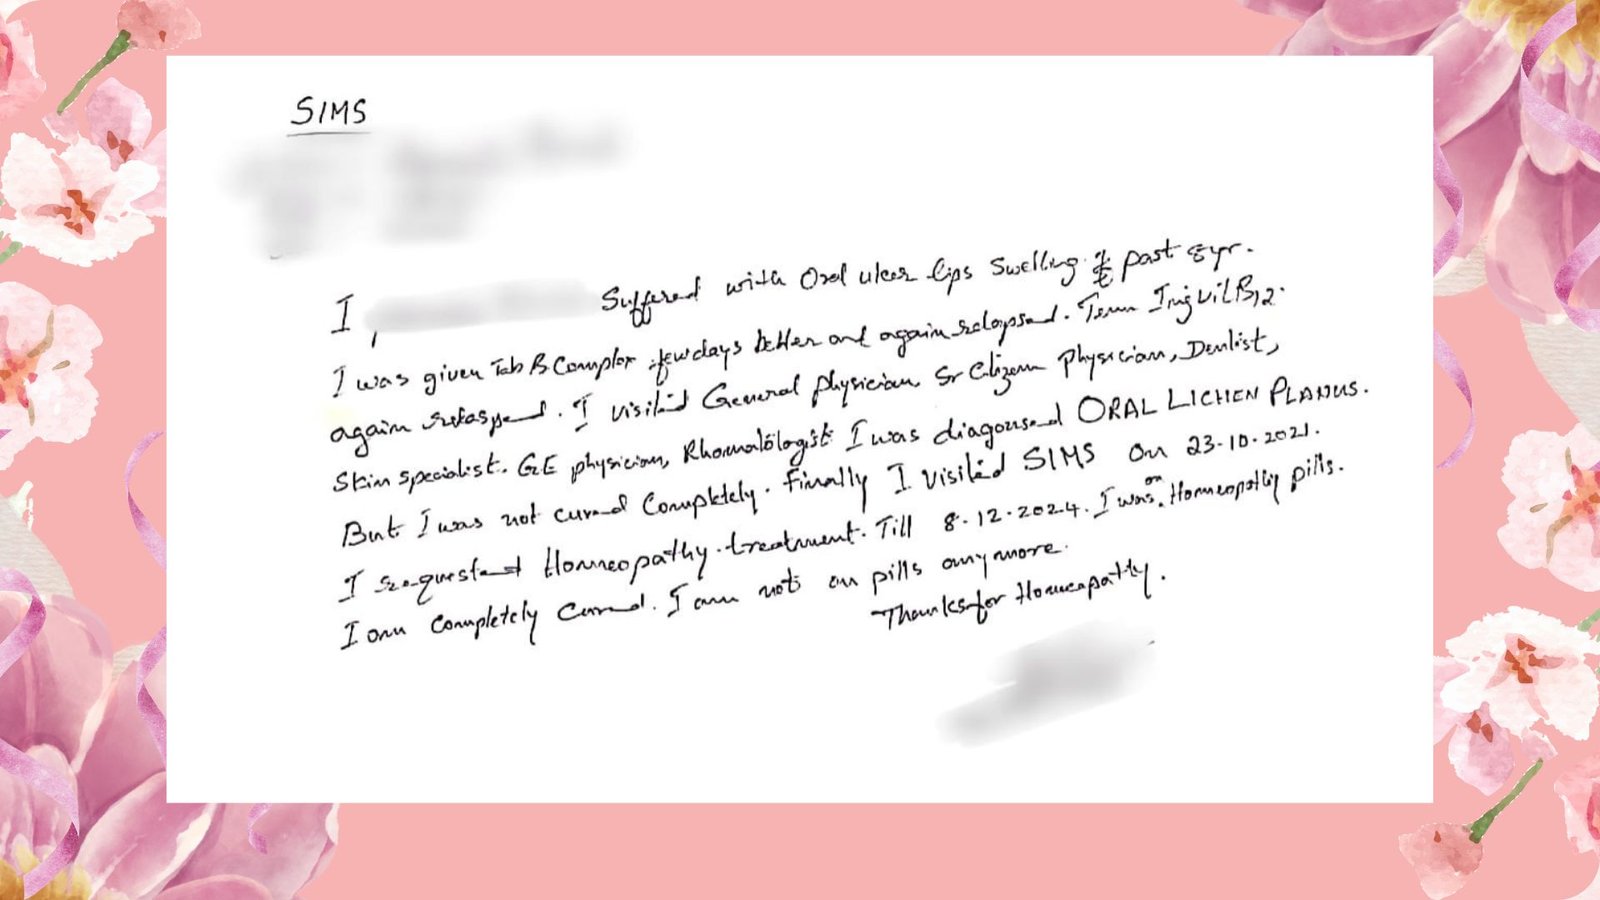 SIMS
I, Suffered with Oral ulcer lips Swelling past 5yr.
I was given Tab B Complex few days better and again relapsed. Tem Inj Vit B12.
again relapsed. I visited General physician, Sr Citizen Physician, Dentist,
Skin specialist. GE physician, Rhomatologist I was diagonsed ORAL LICHEN PLANUS.
But I was not cured Completely. finally I visited SIMS on 23-10-2021.
I requested Homeopathy treatment. Till 8-12-2024. I was on Homeopathy pills.
I am completely cured. I am not on pills anymore.
Thanks for Homeopathy.